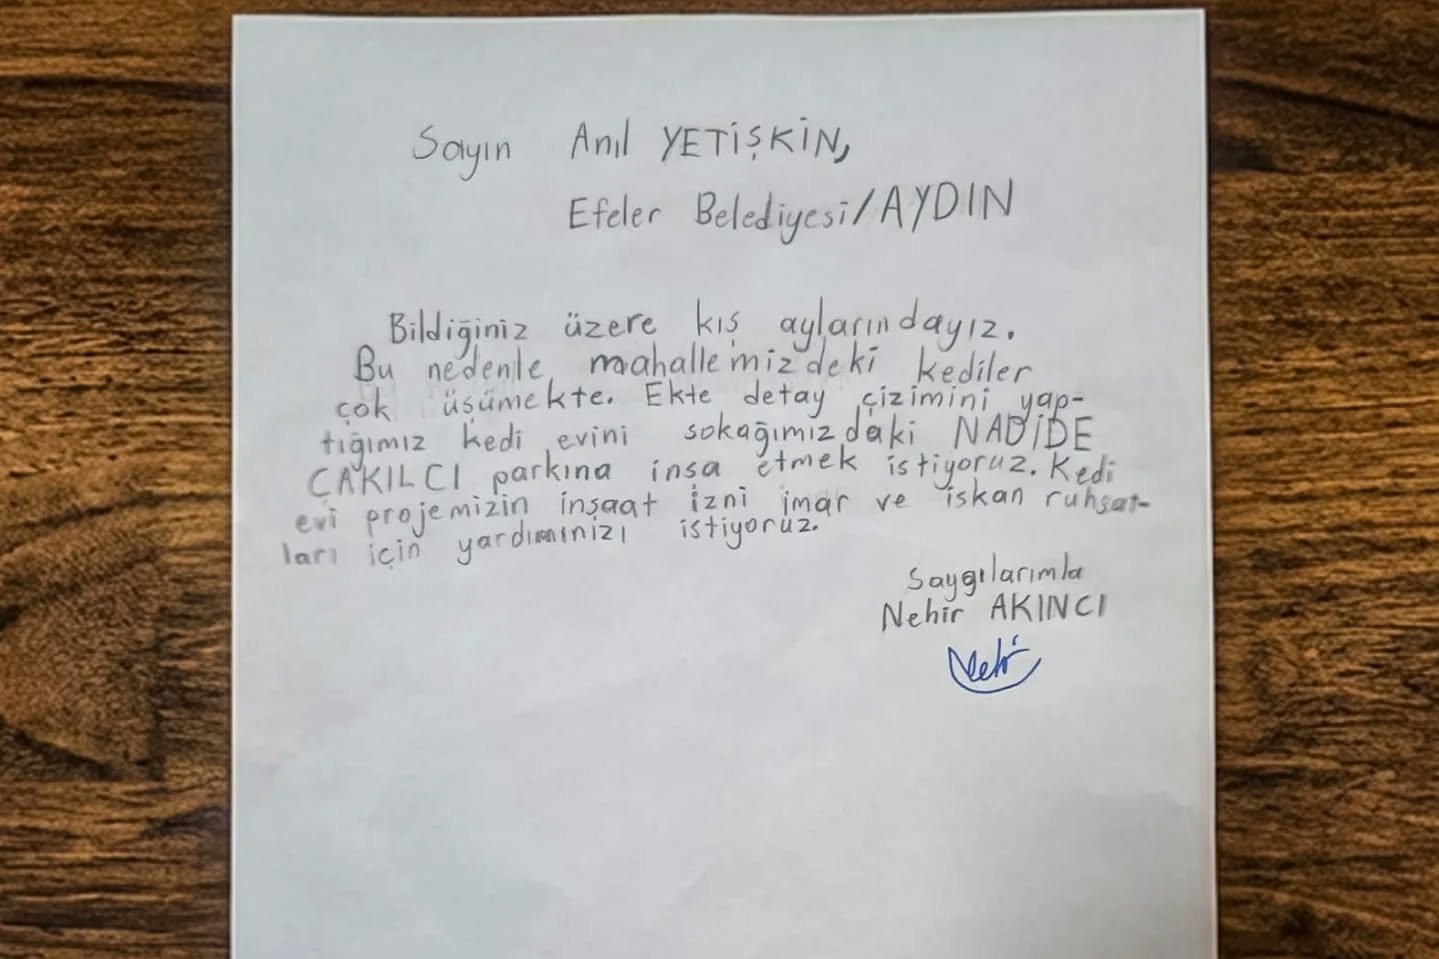 Sayın Anıl YETİŞKİN,
Efeler Belediyesi/AYDIN
Bildiğiniz üzere kış aylarındayız.
Bu nedenle mahallemizdeki kediler
çok üşümekte. Ekte detay çizimini yap-
tığımız kedi evini sokağımızdaki NADİDE
ÇAKILCI parkına inşa etmek istiyoruz. Kedi
evi projemizin inşaat izni imar ve iskan ruhsat-
ları için yardımınızı istiyoruz.
Saygılarımla
Nehir AKINCI
Nehir